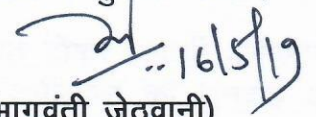 16/5/19
(भागवंती जेठवानी)